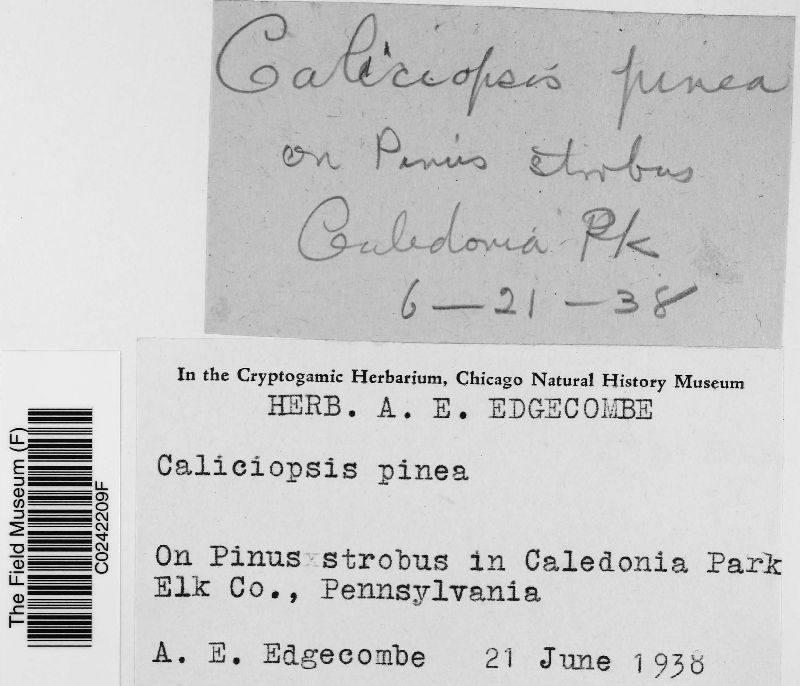 Caliciopsis pinea
on Pinus strobus
Caledonia Pk
6-21-38
In the Cryptogamic Herbarium, Chicago Natural History Museum
HERB. A. E. EDGECOMBE
Caliciopsis pinea
On Pinus strobus in Caledonia Park
Elk Co., Pennsylvania
A. E. Edgecombe 21 June 1938
The Field Museum (F)
C0242209F